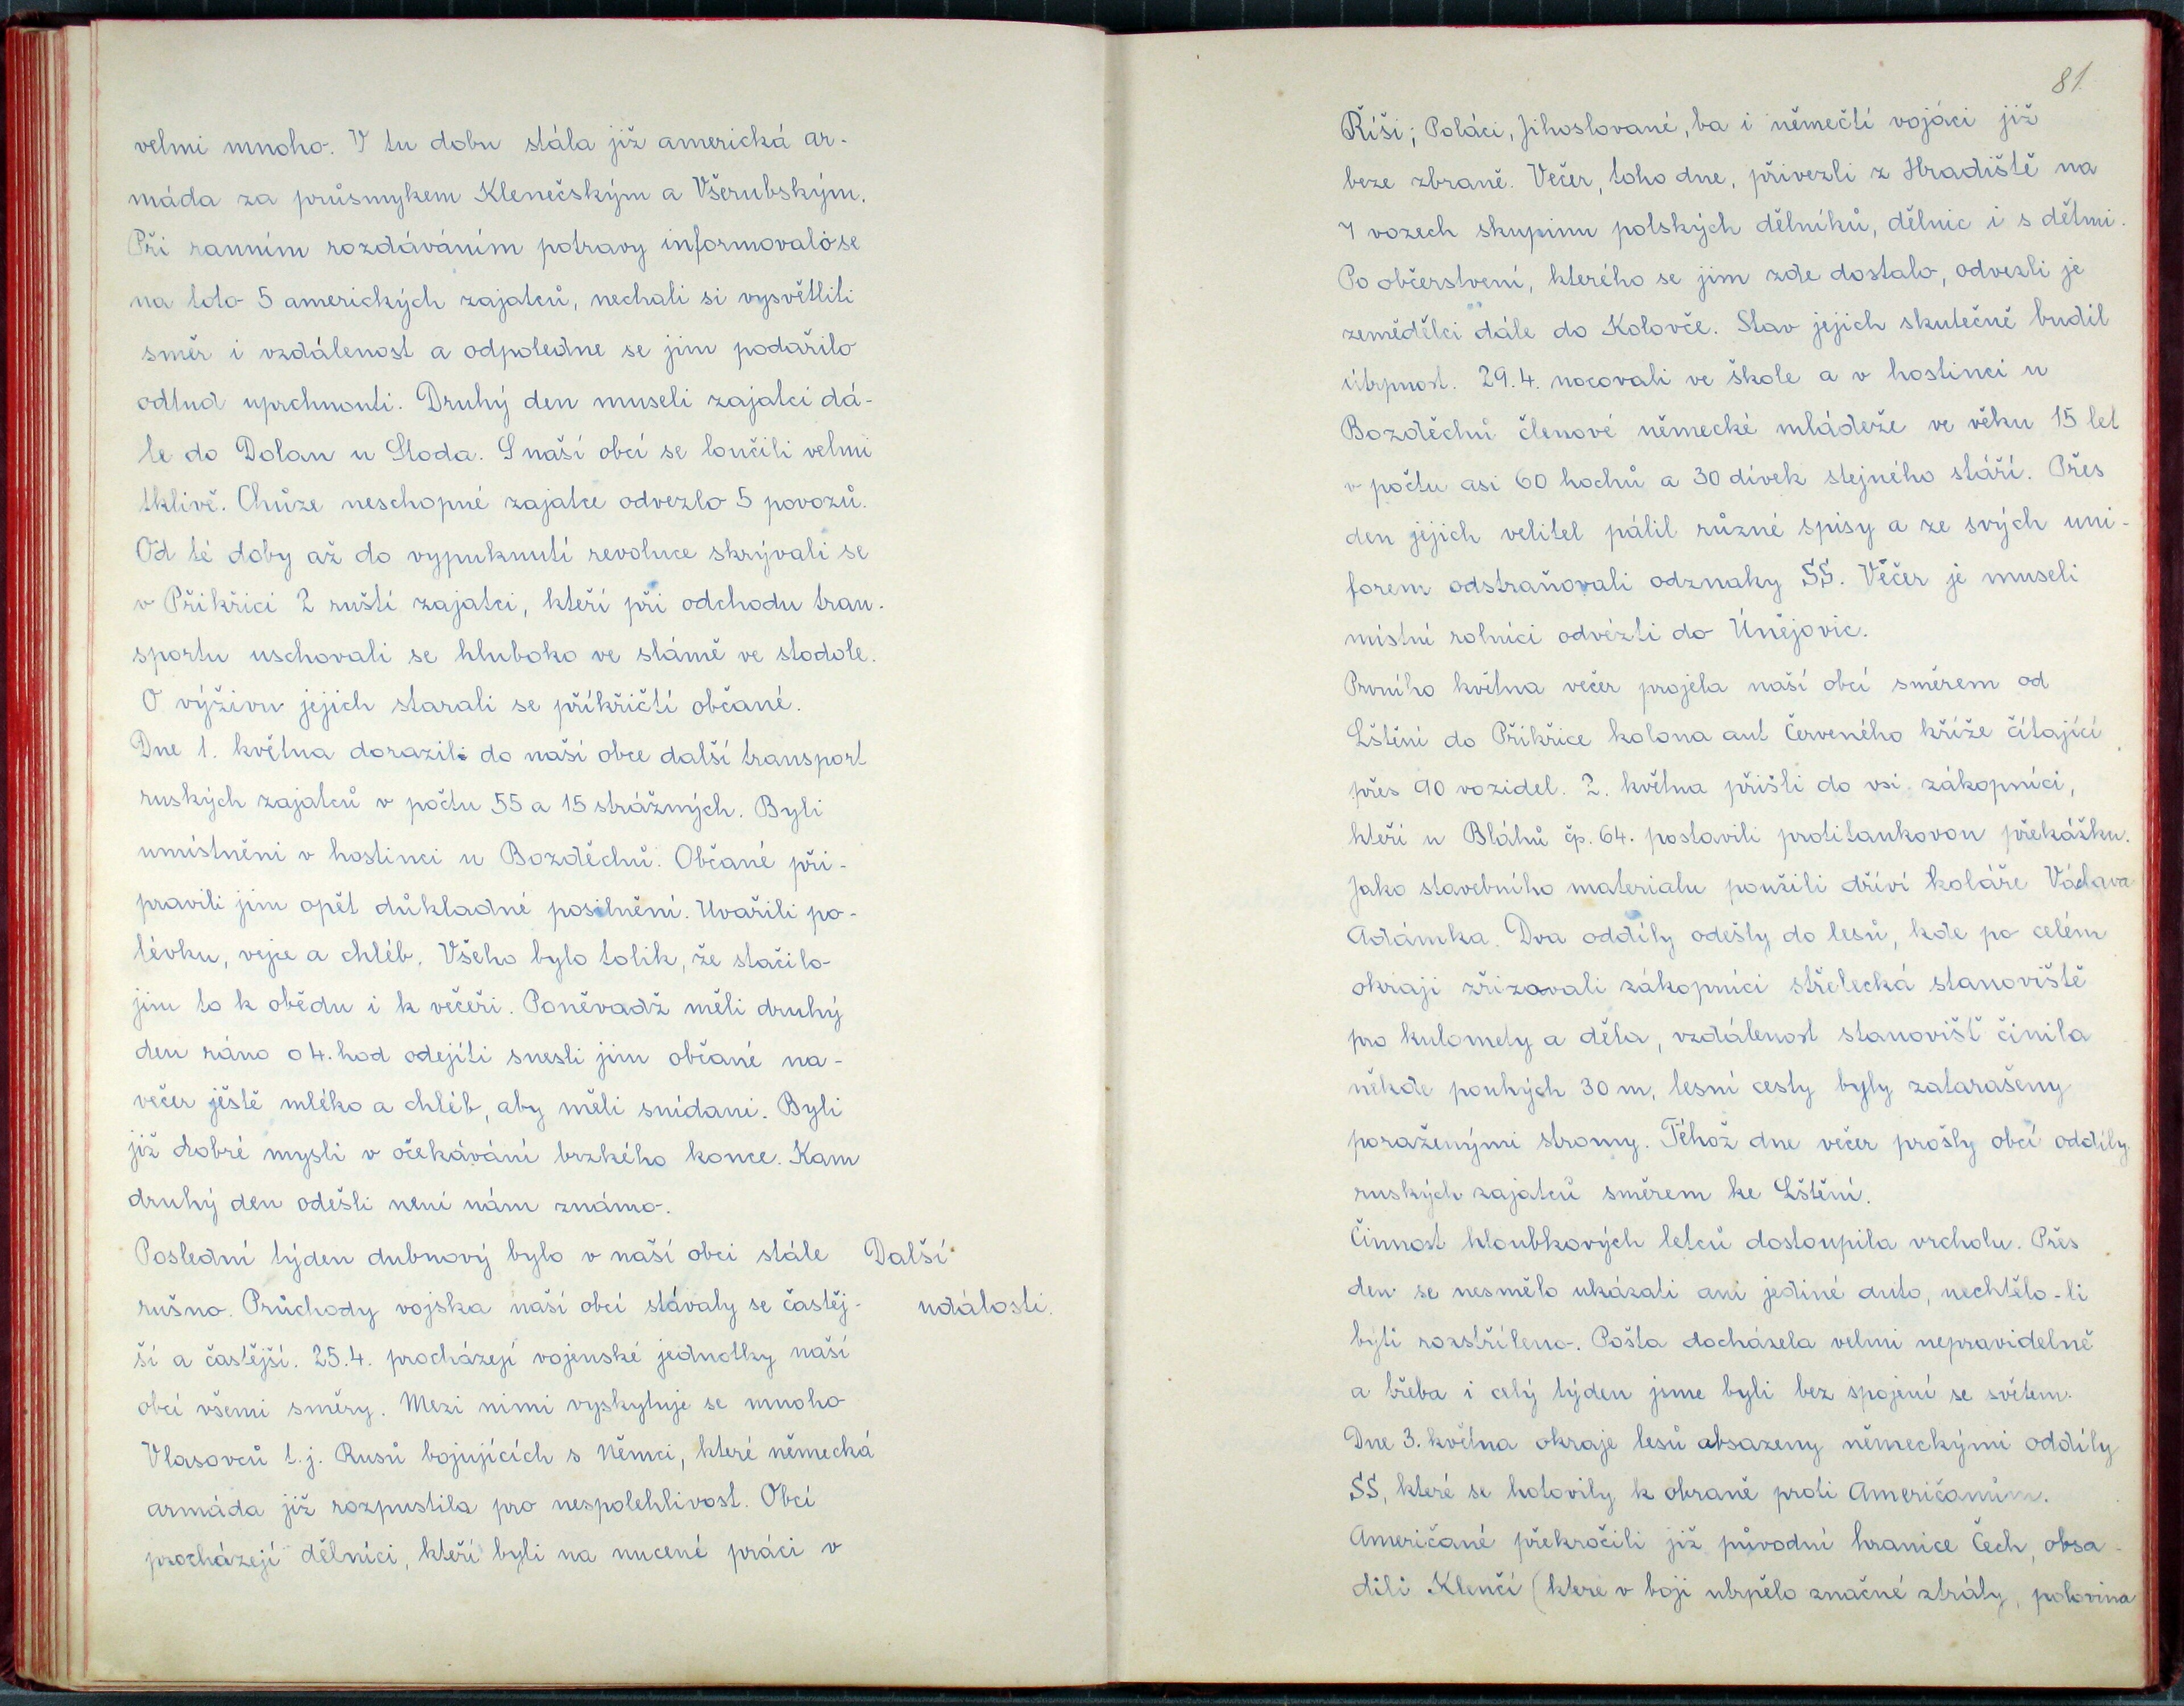 velmi mnoho. V tu dobu stála již americká ar-
máda za průsmykem Klenečským a Všerubským.
Při ranním rozdáváním potravy informovalo se
na toto 5 amerických zajatců, nechali si vysvětliti
směr i vzdálenost a odpoledne se jim podařilo
odtud uprchnouti. Druhý den museli zajatci dá-
le do Dolan u Stoda. S naší obcí se loučili velmi
tklivě. Chůze neschopné zajatce odvezlo 5 povozů.
Od té doby až do vypuknutí revoluce skrývali se
v Přikřici 2 ruští zajatci, kteří při odchodu tran-
sportu uschovali se hluboko ve slámě ve stodole.
O výživu jejich starali se příkřičtí občané.
Dne 1. května dorazil do naší obce další transport
ruských zajatců v počtu 55 a 15 strážných. Byli
umístněni v hostinci u Bozděchů. Občané při-
pravili jim opět důkladné posilnění. Uvařili po-
lévku, vejce a chléb. Všeho bylo tolik, že stačilo
jim to k obědu i k večeři. Poněvadž měli druhý
den ráno o 4. hod odejíti snesli jim občané na-
večer ještě mléko a chléb, aby měli snídani. Byli
již dobré mysli v očekávání brzkého konce. Kam
druhý den odešli není nám známo.
Poslední týden dubnový bylo v naší obci stále
Další
rušno. Průchody vojska naší obcí stávaly se častěj-
události.
ší a častější. 25.4. procházejí vojenské jednotky naší
obcí všemi směry. Mezi nimi vyskytuje se mnoho
Vlasovců t.j. Rusů bojujících s Němci, které německá
armáda již rozpustila pro nespolehlivost. Obcí
procházejí dělníci, kteří byli na nucené práci v
81.
Říši; Poláci, Jihoslované, ba i němečtí vojáci již
beze zbraně. Večer, toho dne, přivezli z Hradiště na
7 vozech skupinu polských dělníků, dělnic i s dětmi.
Po občerstvení, kterého se jim zde dostalo, odvezli je
zemědělci dále do Kolovče. Stav jejich skutečně budil
útrpnost. 29.4. nocovali ve škole a v hostinci u
Bozděchů členové německé mládeže ve věku 15 let
v počtu asi 60 hochů a 30 dívek stejného stáří. Přes
den jejich velitel pálil různé spisy a ze svých uni-
forem odstraňovali odznaky SS. Večer je museli
místní rolníci odvézti do Únějovic.
Prvního května večer projela naší obcí směrem od
Lštění do Přikřice kolona aut Červeného kříže čítající
přes 90 vozidel. 2. května přišli do vsi zákopníci,
kteří u Bláhů čp. 64. postavili protitankovou překážku.
Jako stavebního materialu použili dříví koláře Václava
Adámka. Dva oddíly odešly do lesů, kde po celém
okraji zřizovali zákopníci střelecká stanoviště
pro kulomety a děla, vzdálenost stanovišť činila
někde pouhých 30 m, lesní cesty byly zatarašeny
poraženými stromy. Téhož dne večer prošly obcí oddíly
ruských zajatců směrem ke Lštění.
Činnost hloubkových letců dostoupila vrcholu. Přes
den se nesmělo ukázati ani jediné auto, nechtělo-li
býti rozstříleno. Pošta docházela velmi nepravidelně
a třeba i celý týden jsme byli bez spojení se světem.
Dne 3. května okraje lesů obsazeny německými oddíly
SS, které se hotovily k obraně proti Američanům.
Američané překročili již původní hranice Čech, obsa-
dili Klenčí (které v boji utrpělo značné ztráty, polovina